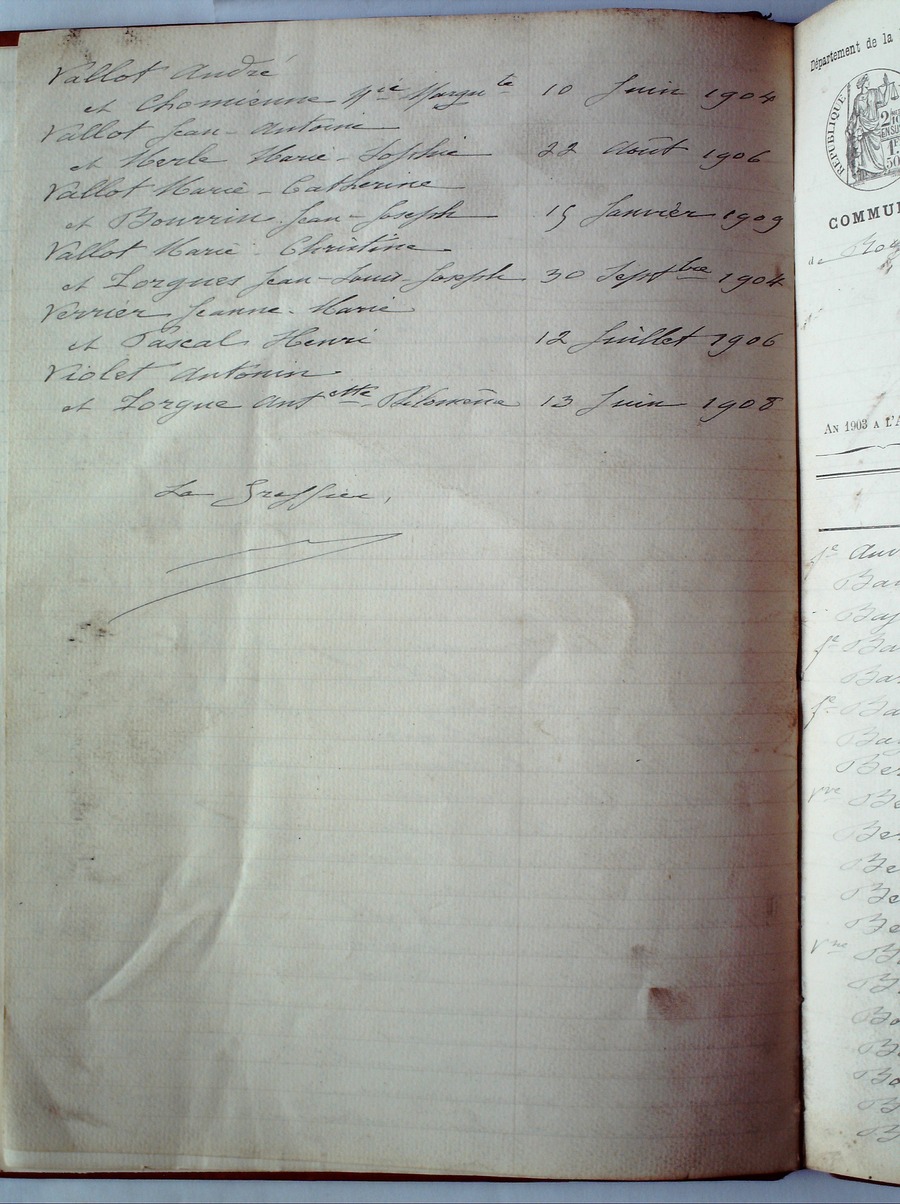 Vallot André
et Chomienne Mie Margte 10 Juin 1904
Vallot Jean-Antoine
et Merle Marie-Sophie 22 Août 1906
Vallot Marie-Catherine
et Bourrin Jean-Joseph 15 Janvier 1909
Vallot Marie-Christine
et Zorgues Jean-Louis-Joseph 30 Septbre 1904
Verrier Jeanne-Marie
et Pascal Henri 12 Juillet 1906
Violet Antonin
et Zorgue Antette Philomène 13 Juin 1908
Le Greffier,
Département de la
RÉPUBLIQUE
COMMU
de
AN 1903 A L'A